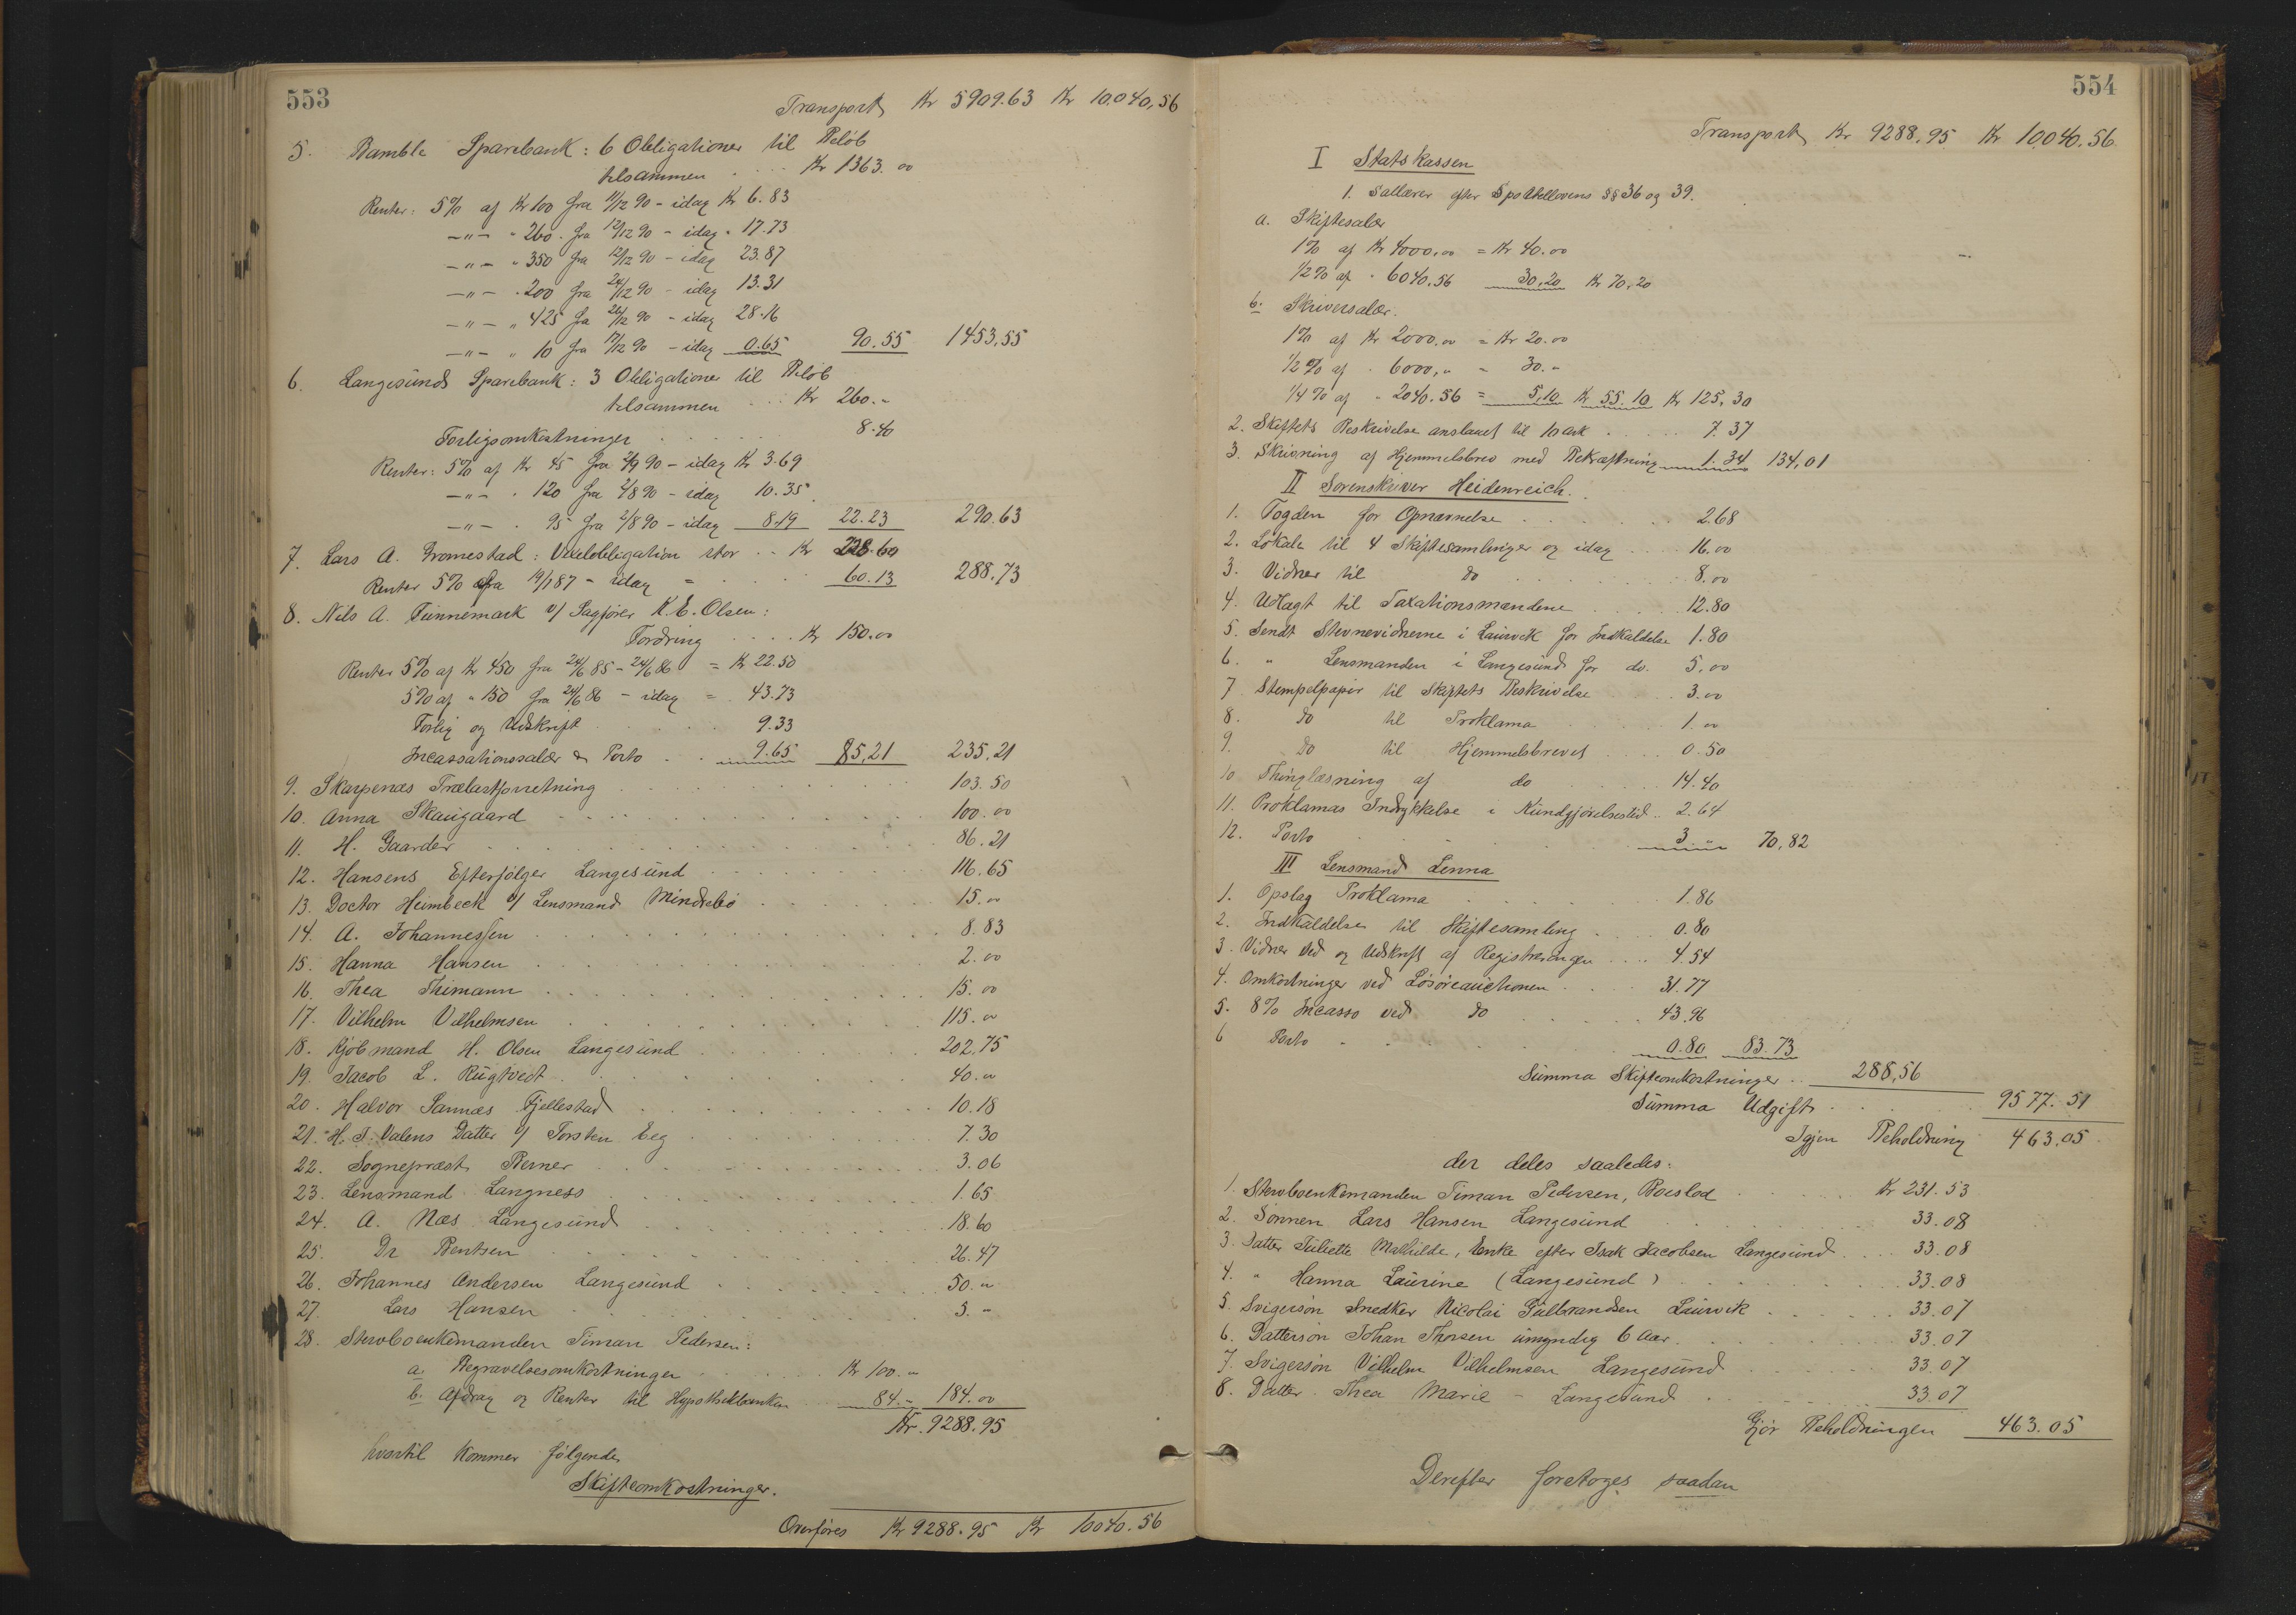 553
Transport Kr 5909.63 Kr 10.040,56
5. Bamble Sparebank: 6 Obligationer til Beløb
tilsammen . . . Kr 1363.00
Renter: 5% af Kr 100 fra 11/12 90 - idag Kr 6.83
-"- " 260. fra 12/12 90 - idag " 17.73
-"- " 350 fra 12/12 90 - idag 23.87
-"- " 200 fra 24/12 90 - idag 13.31
-"- " 425 fra 26/12 90 - idag 28.16
-"- " 10 fra 17/12 90 - idag 0.65 90.55 1453,55
6. Langesunds Sparebank: 3 Obligationer til Beløb
tilsammen . . . Kr 260.-
Forligsomkostninger . . . . . 8.40
Renter: 5% af Kr 45 fra 2/9 90 - idag Kr 3.69
-"- " 120 fra 2/8 90 - idag 10.35
-"- " 95 fra 2/8 90 - idag 8.19 22.23 290.63
7. Lars A. Tromestad: Vexelobligation stor . . Kr 228.60
Renter 5% fra 19/1 87 - idag = . . . . 60.13 288.73
8. Nils A. Tinnemark v/ Sagfører K. E. Olsen:
Fordring . . . . Kr 150.00
Renter 5% af Kr 450 fra 24/6 85 - 24/6 86 = Kr 22.50
5% af " 150 fra 24/6 86 - idag = 43.73
Forlig og Udskrift . . . . 9.33
Incassationssalær & Porto . . 9.65 85,21 235,21
9. Skarpenæs Trælastforretning . . . . 103.50
10. Anna Skaugaard . . . . 100.00
11. H. Gaarder . . . . 86.21
12. Hansens Efterfølger Langesund . . . . 116.65
13. Doctor Heimbeck v/ Lensmand Mindrebø . . . . 15.00
14. A. Johannessen . . . . 8.83
15. Hanna Hansen . . . . 2.00
16. Thea Thimann . . . . 15.00
17. Vilhelm Vilhelmsen . . . . 115.00
18. Kjøbmand H. Olsen Langesund . . . . 202,75
19. Jacob L. Rugtvedt . . . . 40.00
20. Halvor Sannæs Fjellestad . . . . 10.18
21. H. T. Valens Datter v/ Torsten Eeg . . . . 7.30
22. Sognepræst Berner . . . . 3.06
23. Lensmand Langness . . . . 1.65
24. A. Næs Langesund . . . . 18.60
25. Dr Bentsen . . . . 26.47
26. Johannes Andersen Langesund . . . . 50."
27. Lars Hansen . . . . 5."
28. Stervboenkemanden Timan Pedersen:
a. Begravelsesomkostninger . . . . Kr 100."
b. Afdrag og Renter til Hypothekbanken 84.- 184.00
Kr. 9288.95
hvortil kommer følgende
Skifteomkostninger.
Overføres Kr 9288.95 Kr 10040.56
554
Transport Kr 9288,95 Kr 10,040.56
I Statskassen
1. Sallærer efter Sportellovens §§ 36 og 39.
a. Skiftesalær
1% af Kr 4000,00 = Kr 40.00
1/2% af " 6040,56 30,20 Kr 70,20
b. Skriversalær.
1% af Kr 2000.00 = Kr 20.00
1/2% af " 6000," - 30.-
1/4% af " 2040.56 = 5,10 Kr 55.10 Kr 125,30
2. Skiftets Beskrivelse anslaaet til 10 ark . . . . 7.37
3. Skrivning af Hjemmelsbrev med Bekræftning 1.34 134,01
II Sorenskriver Heidenreich.
1. Fogden for Opnævnelse . . . . 2.68
2. Lokale til 4 Skiftesamlinger og idag . . . 16.00
3. Vidner til do . . . . 8.00
4. Udlagt til Taxationsmændene . . . . 12.80
5. Sendt Stevnevidnerne i Laurvik for Indkaldelse 1.80
6. " Lensmanden i Langesund for do. 5,00
7. Stempelpapir til Skiftets Beskrivelse . . . 3.00
8. do til Proklama . . . . 1.00
9. do til Hjemmelsbrevet . . . . 0.50
10 Thinglæsning af do . . . . 14.40
11. Proklamas Indrykkelse i Kundgjørelsestid. . 2.64
12. Porto . . . . 3." 70,82
III Lensmand Lenna
1. Opslag Proklama . . . . 1.86
2. Indkaldelse til Skiftesamling . . . 0.80
3. Vidner ved og Udskrift af Registreringen . . . . 4.54
4. Omkostninger ved Løsøreauctionen . . . . 31.77
5. 8% Incasso ved do . . . . 43.96
6 Porto . . . . 0.80 83.73
Summa Skifteomkostninger . . 288,56
Summa Udgift . . . . 9577.51
Igjen Beholdning 463.05
der deles saaledes:
1. Stervboenkemanden Timan Pedersen, Boeslod . . . . Kr 231.53
2. Sønnen Lars Hansen Langesund . . . . 33.08
3. Datter Juliette Mathilde, Enke efter Isak Jacobsen Langesund . . . . 33.08
4. " Hanna Laurine (Langesund) . . . . 33.08
5. Svigersøn Snedker Nicolai Gulbrandsen Laurvik . . . . 33.07
6. Dattersøn Johan Thorsen umyndig 6 Aar. . . . 33.07
7. Svigersøn Vilhelm Vilhelmsen Langesund . . . . 33.07
8. Datter Thea Marie - Langesund . . . . 33.07
Gjør Beholdningen 463.05
Derefter foretoges saadan